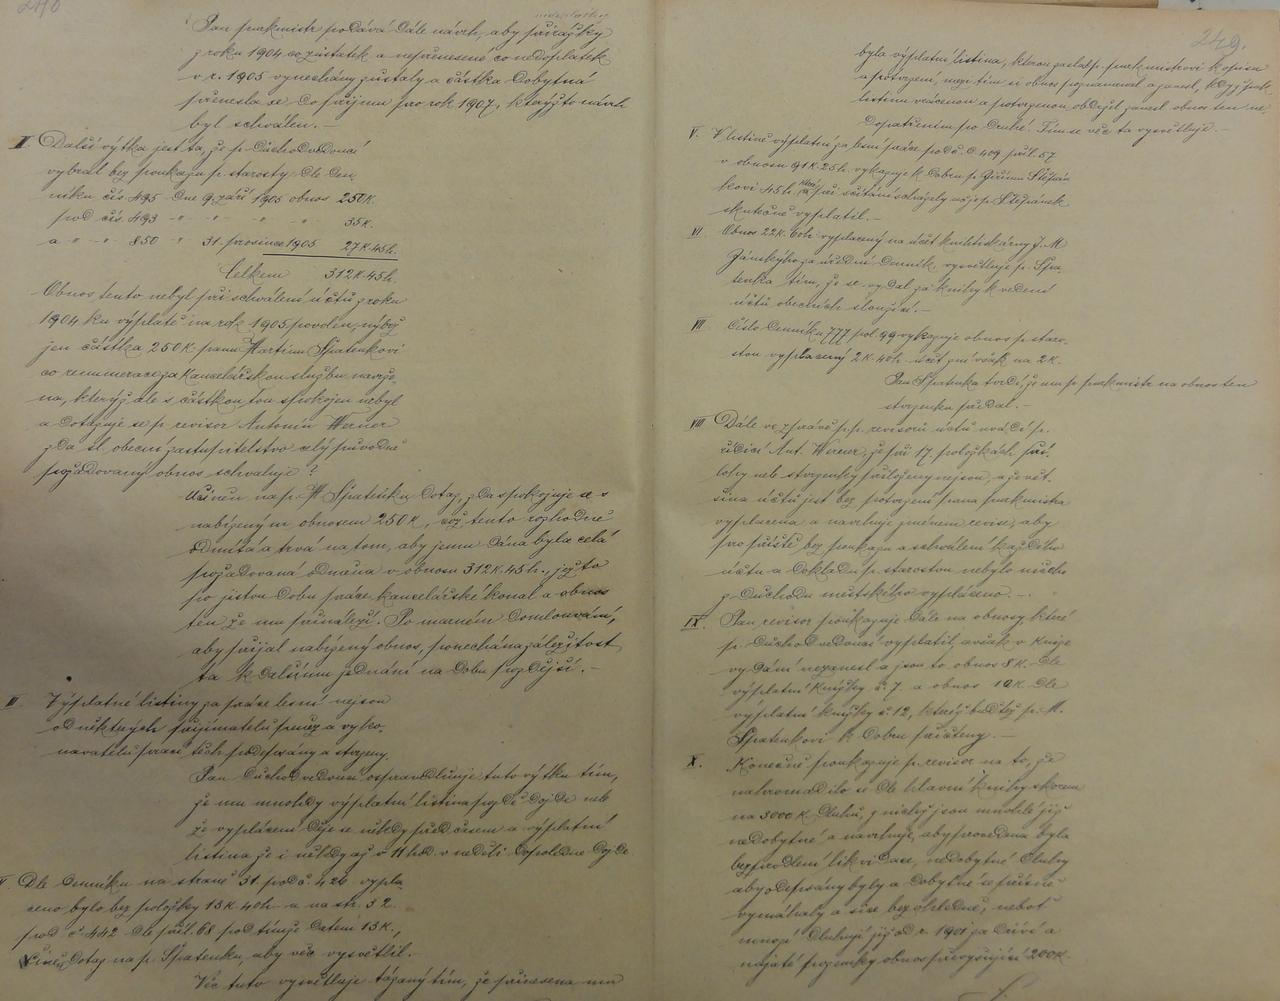 248
nedoplatky
Pan purkmistr podává dále návrh, aby přirážky
z roku 1904 co zůstatek a nepřenesené co nedoplatek
v r. 1905 vynechány zůstaly a částka dobytná
přenesla se do příjmu pro rok 1907, kterýžto návrh
byl schválen.-
II. Další výtka jest ta, že p. důchodvedoucí
vybral bez poukazu p. starosty dle den-
níku čís 495 dne 9. září 1905 obnos 250K.
pod čís. 493 " " " " 35K.
a " " 850 " 31. prosince 1905 27K 45h.
Celkem 312K.45h.
Obnos tento nebyl při schválení účtů z roku
1904 ku výplatě na rok 1905 povolen, nýbrž
jen částka 250K panu Martinu Špatenkovi
co remunerace za kancelářskou službu navrže-
na, kterýž ale s částkou tou spokojen nebyl
a dotazuje se p. revisor Antonín Werner
zda sl. obecní zastupitelstvo celý původně
požadovaný obnos schvaluje?
Učiněn na p. M Špatenku dotaz, zda spokojuje se s
nabízeným obnosem 250K, což tento rozhodně
odmítá a trvá na tom, aby jemu dána byla celá
požadovaná odměna v obnosu 312K.45h., ježto
po jistou dobu práce kancelářské konal a obnos
ten že mu přináleží. Po marném domlouvání,
aby přijal nabízený obnos, ponechána záležitost
ta k dalšímu jednání na dobu pozdější.-
III. Výplatné listiny za práce lesní nejsou
od některých přijímatelů peněz a vyko-
navatelů prací těch podepsány a stvrzeny.
Pan důchodvedoucí ospravedlňuje tuto výtku tím,
že mu mnohdy výplatní listina pozdě dojde neb
že vyplácení děje se někdy před časem a výplatní
listina že i někdy až v 11 hod. v neděli dopoledne dojde.
Dle denníku na straně 31 pod č. 424 vypla-
ceno bylo bez položky 13K 40h a na str. 32
pod č. 442 dle příl. 68 pod týmže datem 13K,
Činěn dotaz na p. Špatenku, aby věc vysvětlil.-
Věc tuto vysvětluje tázaný tím, že přinesena mu
249.
byla výplatní listina, kterou zaslal p. purkmistrovi k opisu
a potvrzení, mezi tím si obnos poznamenal a zanesl, když pak
listinu vrácenou a potvrzenou obdržel zanesl obnos ten ne-
dopatřením po druhé. Tím se věc ta vysvětluje.-
V. V listině výplatní za lesní práce pod č. d. 409 příl. 57
v obnosu 91K.25h. vykazuje k dobru p. Jiřímu Štěpán-
kovi 45h. které při sčítání scházely což je p. Štěpánek
skutečně vyplatil.-
VI Obnos 22K.60h vyplacený na účet knihtiskárny J. M
Jánského za úřední denník vysvětluje p. Špa-
tenka tím, že se vydal za knihy k vedení
účtů obecních sloužící.-
VII Číslo denníku 777 pol. 99 vykazuje obnos p. staro-
stou vyplacený 2K 40h účet zní však na 2K.
Pan Špatenka tvrdí, že mu p. purkmistr na obnos ten
stvrzenku předal.-
VIII Dále ve zprávě p.p. revisorů účtů uvádí p.
řídící Ant. Werner, že při 17. položkách pří-
lohy neb stvrzenky přiloženy nejsou, a že vět-
šina účtů jest bez potvrzení pana purkmistra
vyplacena a navrhuje jménem revise, aby
pro příště bez poukazu a schválení každého
účtu a dokladu p. starostou nebylo ničeho
z důchodu městského vypláceno-.
IX. Pan revisor poukazuje dále na obnosy které
p. důchodvedoucí vyplatil, avšak v knize
vydání nezanesl a jsou to obnos 8K. dle
výplatní knížky č. 7. a obnos 10K dle
výplatní knížky č. 12, kterýž buďtéž p. M.
Špatenkovi k dobru přičteny.-
X. Konečně poukazuje p. revisor na to, že
nahromadilo se dle hlavní knihy skorem
na 3000 K. dluhů, z nichž jsou mnohé již
nedobytné a navrhuje, aby provedena byla
bezprodlení likvidace, nedobytné dluhy
aby odepsány byly a dobytné se přísně
vymáhaly a sice bezohledně, neboť
mnozí dluhují již od r. 1901 za dříví a
najaté pozemky obnos převyšující 200K.